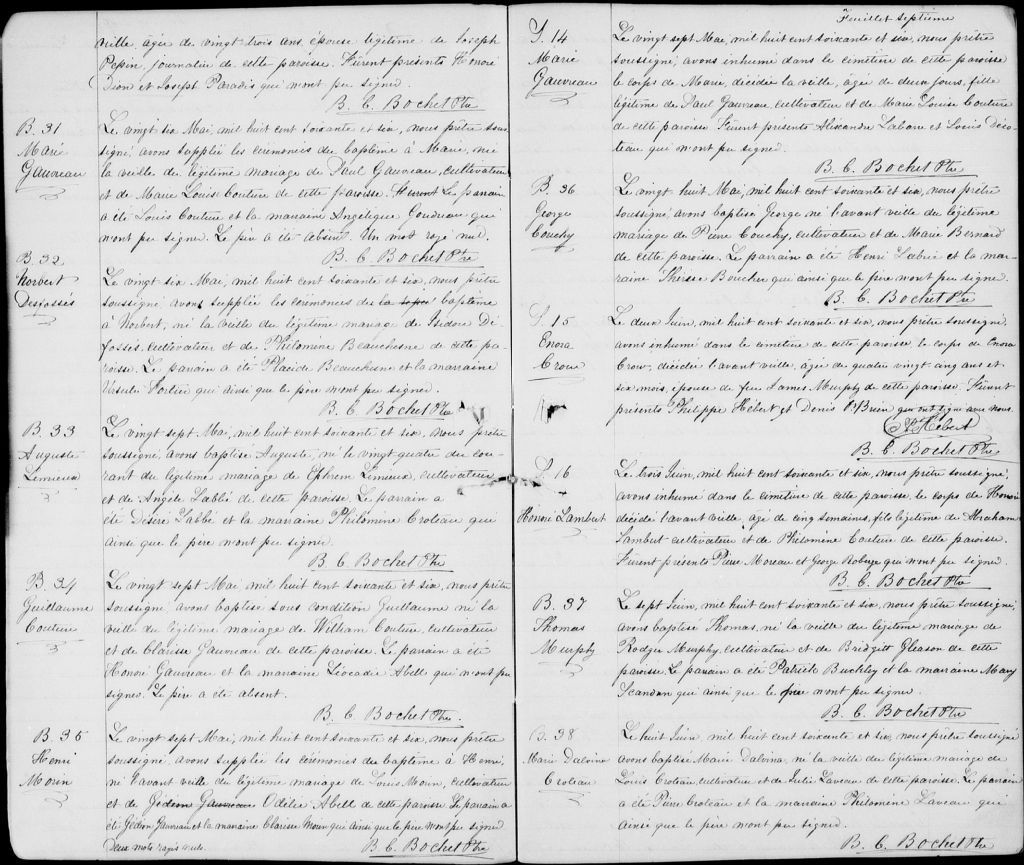 ville, agée de vingt trois ans épouse légitime de Joseph
Pepin, journalier de cette paroisse. Fûrent présents Honoré
Dion et Joseph Paradis qui n'ont pu signer.
B. C. Bochet Ptre
B. 31
Marie
Gauvreau
Le vingt six Mai, mil huit cent soixante et six, nous prêtre sous
signé, avons supplée les cérémonies du baptême à Marie, née
la veille du légitime mariage de Paul Gauvreau, cultivateur
et de Marie Louise Couture de cette paroisse. Fûrent Le parrain
a été Louis Couture et la marraine Angelique Goudreau qui
n'ont pu signer. Le père a été absent. Un mot rayé nul.
B. C. Bochet Ptre
B. 32
Norbert
Desfossés
Le vingt six Mai, mil huit cent soixante et six, nous prêtre
soussigné, avons supplée les cérémonies de la baptême
à Norbert, né la veille du légitime mariage de Isidore Dé
fossés, cultivateur et de Philomine Beauchesne de cette pa-
roisse. Le parrain a été Placide Beauchesne et la marraine
Ursule Fortier qui ainsi que le père n'ont pu signer.
B. C. Bochet Ptre
B. 33
Auguste
Lemieux
Le vingt sept Mai, mil huit cent soixante et six, nous prêtre
soussigné, avons baptisé Auguste, né le vingt quatre du cou-
rant du légitime mariage de Ephrem Lemieux, cultivateur
et de Angèle Labbé de cette paroisse. Le parrain a
été Désiré Labbé et la marraine Philomine Croteau qui
ainsi que le père n'ont pu signer.
B. C. Bochet Ptre
B. 34
Guillaume
Couture
Le vingt sept Mai, mil huit cent soixante et six, nous prêtre
soussigné, avons baptisé sous condition Guillaume né la
veille du légitime mariage de William Couture, cultivateur
et de Claïsse Gauvreau de cette paroisse. Le parrain a été
Honoré Gauvreau et la marraine Léocadie Abell qui n'ont pu
signer. Le père a été absent.
B. C. Bochet Ptre.
B. 35
Henri
Morin
Le vingt sept Mai, mil huit cent soixante et six, nous prêtre
soussigné, avons supplée les cérémonies du baptême à Henri,
né l'avant veille du légitime mariage de Louis Morin, cultivateur
et de Gédéon Gauvreau Odélie Abell de cette paroisse. Le parrain a
été Gédéon Gauvreau et la marraine Claïsse Morin qui ainsi que le père n'ont pu signer
Deux mots rayés nuls.
B. C. Bochet Ptre
Feuillet septième
S. 14
Marie
Gauvreau
Le vingt sept Mai, mil huit cent soixante et six, nous prêtre
soussigné, avons inhumé dans le cimetière de cette paroisse
le corps de Marie, décédée la veille, âgée de deux jours, fille
légitime de Paul Gauvreau, cultivateur et de Marie Louise Couture
de cette paroisse. Fûrent présents Alexandre Labarre et Louis Déco-
teau qui n'ont pu signer.
B. C. Bochet Ptre
B. 36
George
Couchy
Le vingt huit Mai, mil huit cent soixante et six, nous prêtre
soussigné, avons baptisé George né l'avant veille du légitime
mariage de Pierre Couchy, cultivateur et de Marie Bernard
de cette paroisse. Le parrain a été Henri Labrie et la mar-
raine Thérèse Boucher qui ainsi que le père n'ont pu signer
B. C. Bochet Ptre
S. 15
Enora
Crow
Le deux Juin, mil huit cent soixante et six, nous prêtre soussigné,
avons inhumé dans le cimetière de cette paroisse le corps de Enora
Crow, décédée l'avant veille, âgée de quatre vingt cinq ans et
six mois, épouse de feu James Murphy de cette paroisse. Fûrent
présents Philippe Hébert et Denis O'Brien qui ont signé avec nous.
P Hebert
B. C. Bochet Ptre
S. 16
Honoré Lambert
Le trois Juin, mil huit cent soixante et six, nous prêtre soussigné,
avons inhumé dans le cimetière de cette paroisse, le corps de Honoré
décédé l'avant veille, âgé de cinq semaines, fils légitime de Abraham
Lambert cultivateur et de Philomine Couture de cette paroisse.
Fûrent présents Pierre Moreau et George Roberge qui n'ont pu signer.
B. C. Bochet Ptre
B. 37
Thomas
Murphy
Le sept Juin, mil huit cent soixante et six, nous prêtre soussigné,
avons baptisé Thomas, né la veille du légitime mariage de
Rodger Murphy, cultivateur et de Bridgitt Gleason de cette
paroisse. Le parrain a été Patrick Buckley et la marraine Mary
Scandon qui ainsi que le père n'ont pu signer.
B. C. Bochet Ptre
B. 38
Marie Dalvina
Croteau
Le huit Juin, mil huit cent soixante et six, nous prêtre soussigné
avons baptisé Marie Dalvina, née la veille du légitime mariage de
Louis Croteau, cultivateur et de Julie Laveau de cette paroisse. Le parrain
a été Pierre Croteau et la marraine Philomène Laveau qui
ainsi que le père n'ont pu signer.
B. C. Bochet Ptre